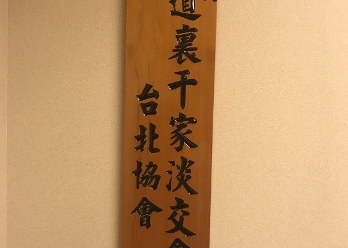 道裏千家淡交會
台北協會